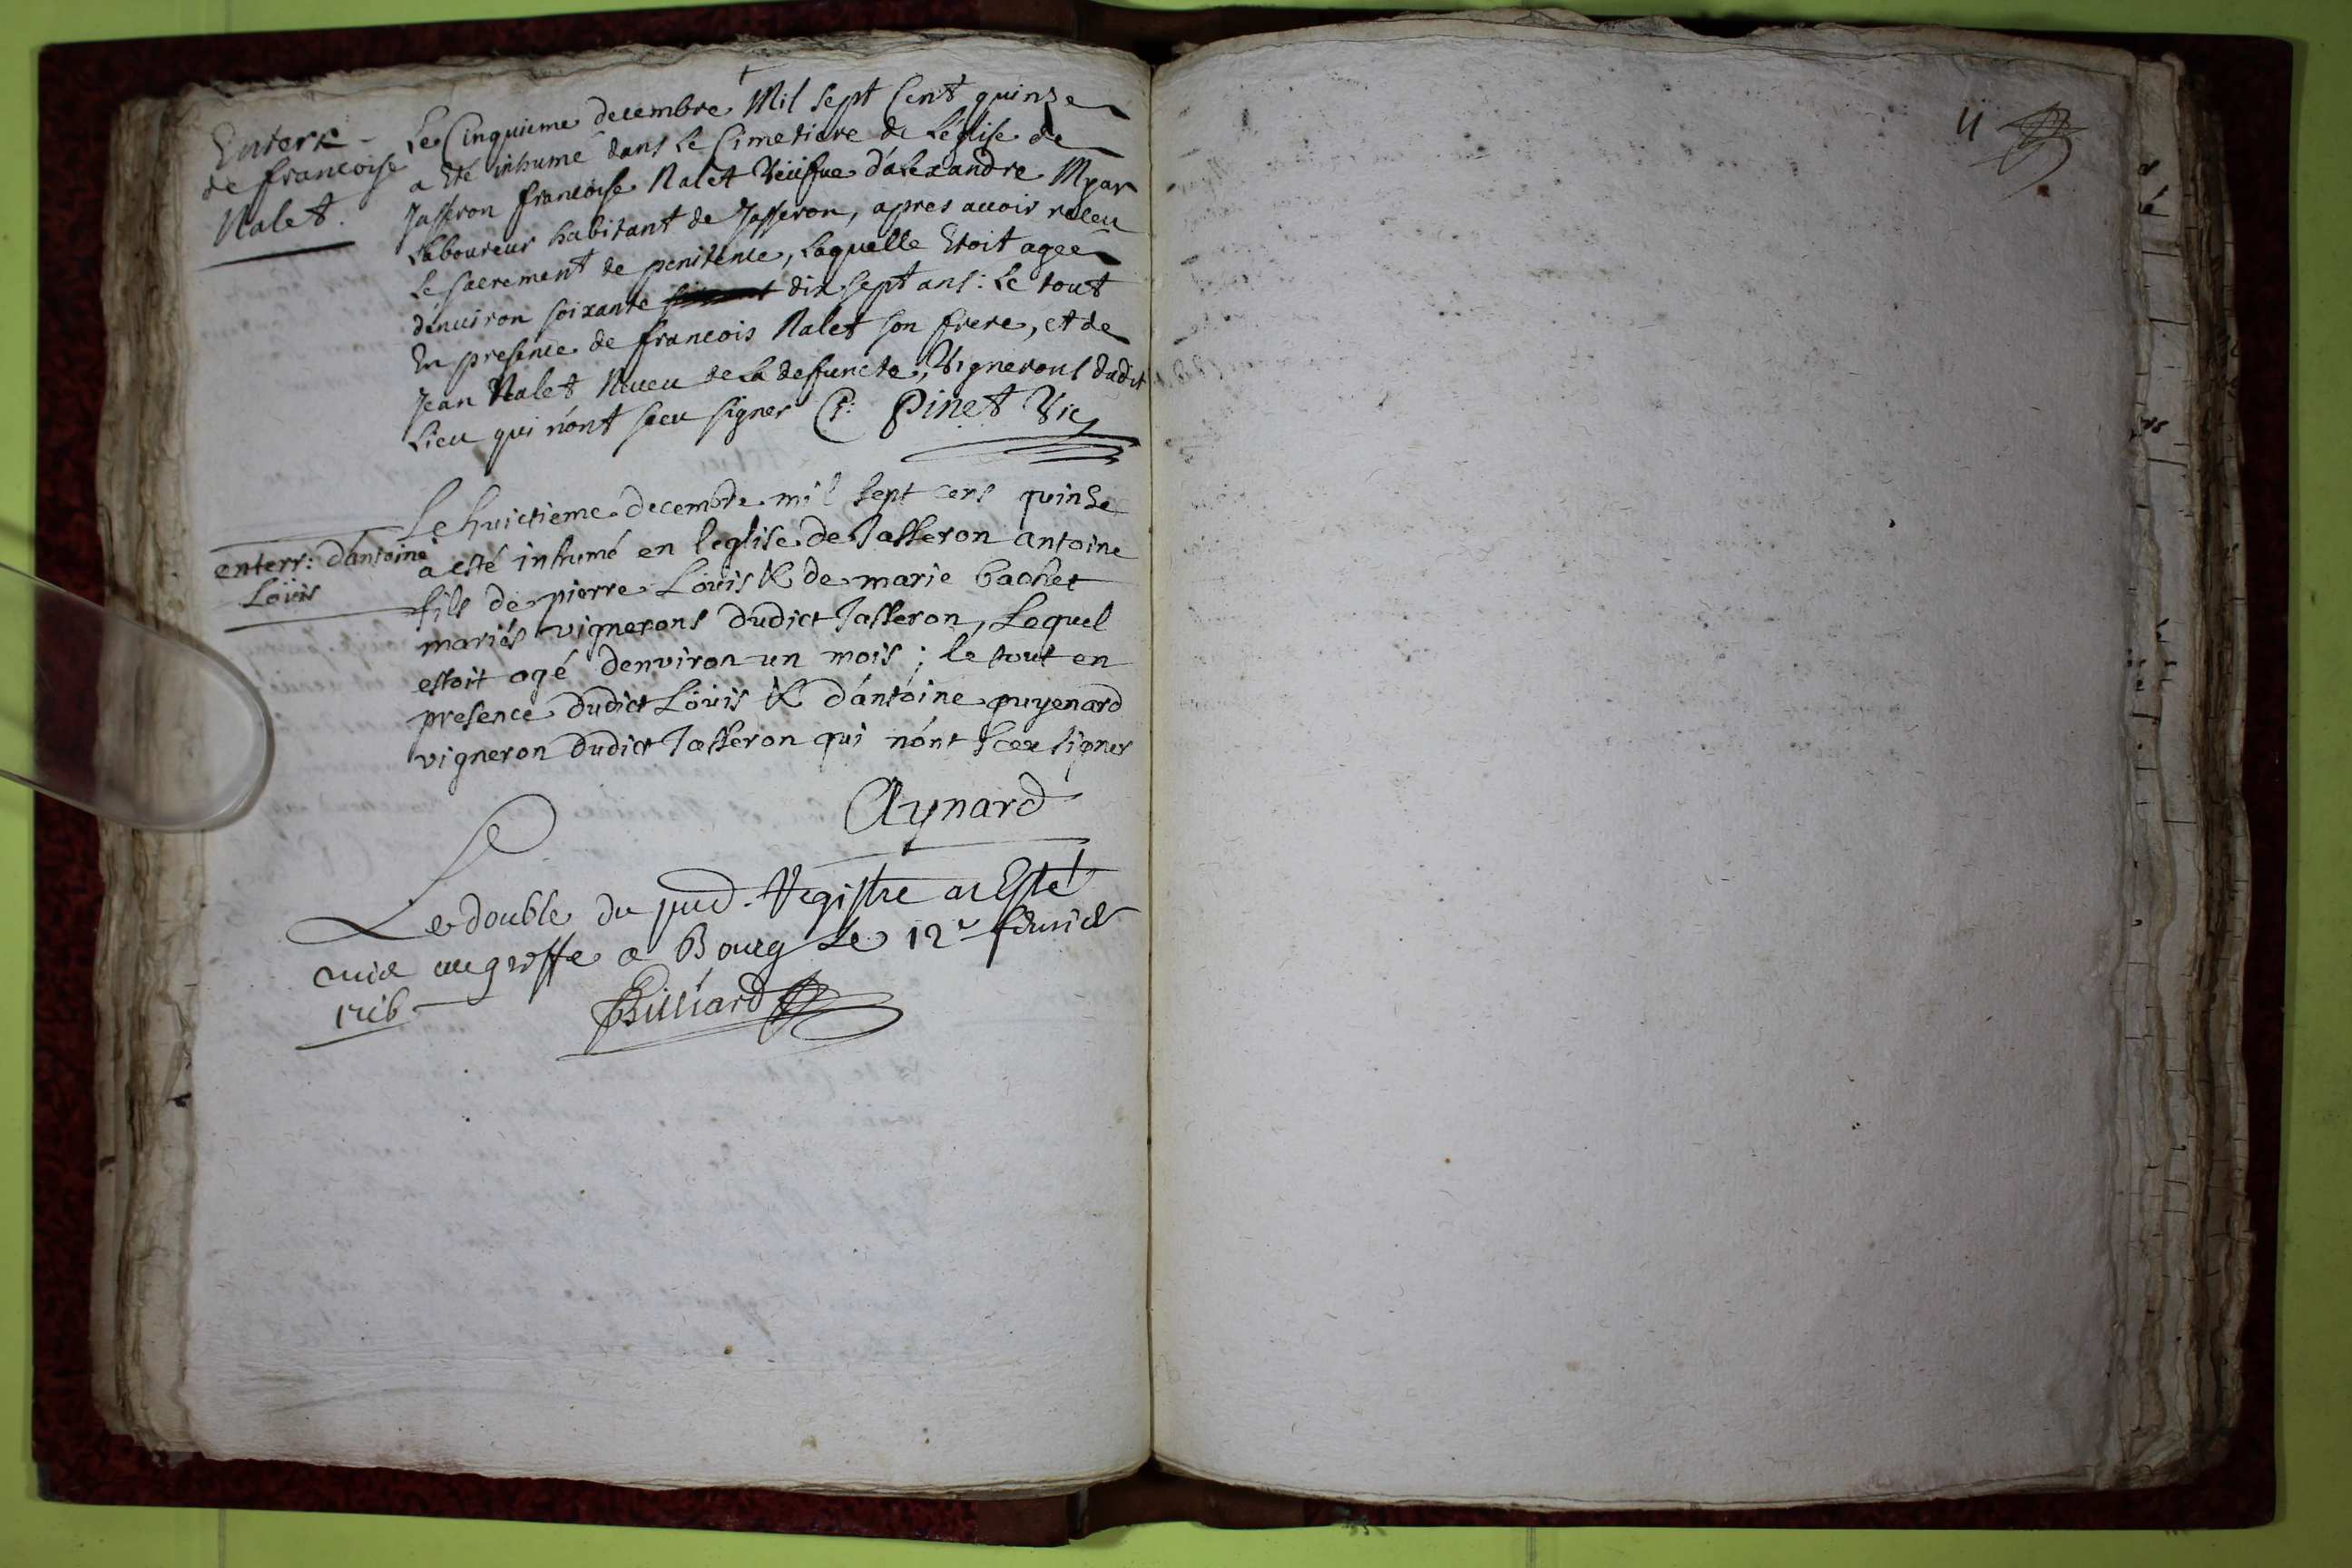 Enterr
de francoise
Nalet.
Le Cinquieme decembre Mil sept Cent quinze
a été inhumé dans le Cimetiere de Léglise de
Jasseron francoise Nalet Veüfue d'alexandre Myar
Laboureur habitant de Jasseron, apres auoir receu
Le sacrement de penitence, Laquelle Etoit agee
denuiron soixante dix sept ans: Le tout
En presence de francois Nalet son frere, et de
Jean Nalet Nueu de La defuncte, Vignerons dudit
Lieu qui n'ont sceu signer C: Pinet Vic
enterr: d'antoine
Loüis
Le huictieme decembre mil sept cens quinze
a esté inhumé en l'eglise de Jasseron antoine
fils de pierre Loüis & de marie bachet
mariés vignerons dudict Jasseron, Lequel
estoit agé denviron un mois; le tout en
presence dudict Loüis & d'antoine puyenard
vigneron dudict Jasseron qui n'ont sceu signer
Aynard
Le double du pnt. Registre a Esté
mis au greffe a Bourg Le 12e feurier
1716
Billiard
11